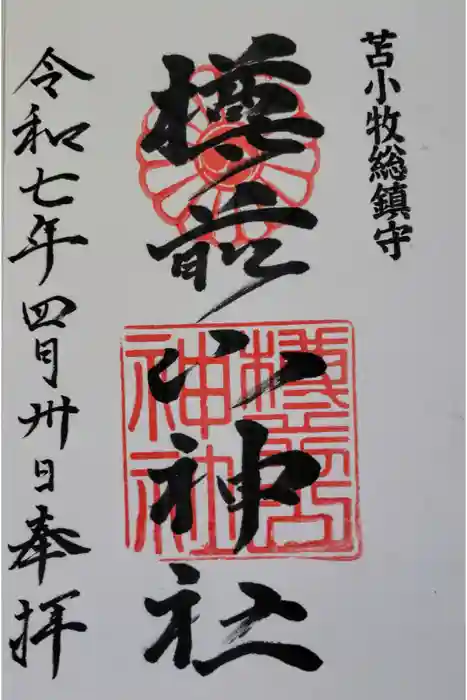 苫小牧総鎮守
樽前山神社
令和七年四月卅日奉拝
樽前山神社